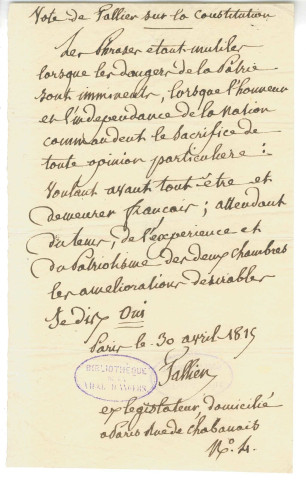 Vote de Tallien sur la Constitution
Les Phrases étant inutiles
lorsque les dangers de la Patrie
sont imminents, lorsque l'honneur
et l'indépendance de la Nation
commandent le Sacrifice de
toute opinion particulière :
voulant avant tout être et
demeurer français ; attendant
du tems, de l'expérience et
du Patriotisme des deux chambres
les améliorations désirables
Je dis Oui
Paris le 30 avril 1815
Tallien
BIBLIOTHÈQUE
VILLE D'ANGERS
ex législateur domicilié
a Paris Rue de Chabanais
No. 4.